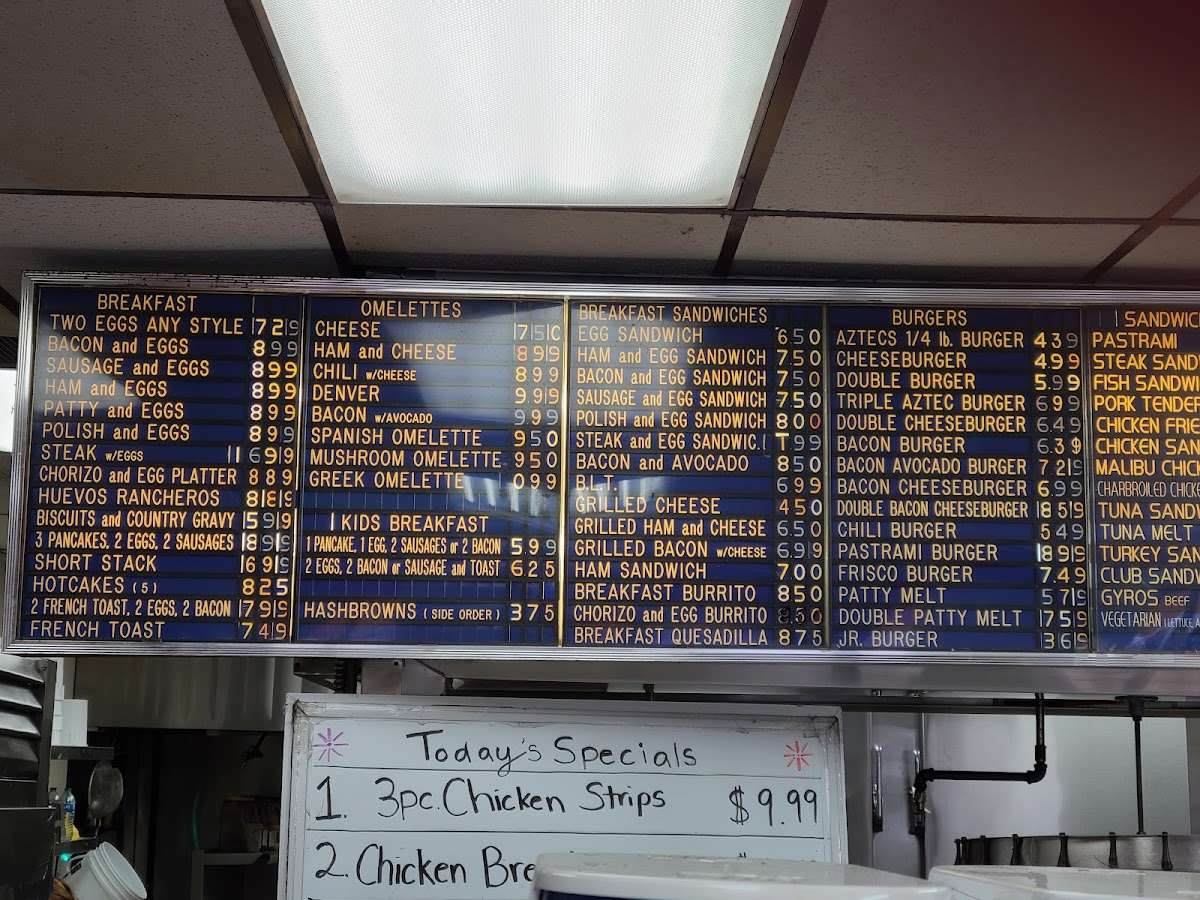 BREAKFAST
TWO EGGS ANY STYLE 729
BACON and EGGS 899
SAUSAGE and EGGS 899
HAM and EGGS 899
PATTY and EGGS 899
POLISH and EGGS 899
STEAK w/EGGS 11 699
CHORIZO and EGG PLATTER 889
HUEVOS RANCHEROS 889
BISCUITS and COUNTRY GRAVY 599
3 PANCAKES, 2 EGGS, 2 SAUSAGES 899
SHORT STACK 699
HOTCAKES (5) 825
2 FRENCH TOAST, 2 EGGS, 2 BACON 799
FRENCH TOAST 749
OMELETTES
CHEESE 75C
HAM and CHEESE 899
CHILI w/CHEESE 899
DENVER 999
BACON w/AVOCADO 999
SPANISH OMELETTE 950
MUSHROOM OMELETTE 950
GREEK OMELETTE 099
KIDS BREAKFAST
1 PANCAKE, 1 EGG, 2 SAUSAGES or 2 BACON 5.99
2 EGGS, 2 BACON or SAUSAGE and TOAST 625
HASHBROWNS (SIDE ORDER) 375
BREAKFAST SANDWICHES
EGG SANDWICH 650
HAM and EGG SANDWICH 7.50
BACON and EGG SANDWICH 750
SAUSAGE and EGG SANDWICH 750
POLISH and EGG SANDWICH 800
STEAK and EGG SANDWIC.I T99
BACON and AVOCADO 850
B.L.T. 699
GRILLED CHEESE 450
GRILLED HAM and CHEESE 650
GRILLED BACON w/CHEESE 699
HAM SANDWICH 7.00
BREAKFAST BURRITO 850
CHORIZO and EGG BURRITO 8.50
BREAKFAST QUESADILLA 875
BURGERS
AZTECS 1/4 lb. BURGER 439
CHEESEBURGER 4.99
DOUBLE BURGER 5.99
TRIPLE AZTEC BURGER 699
DOUBLE CHEESEBURGER 6.49
BACON BURGER 6.39
BACON AVOCADO BURGER 729
BACON CHEESEBURGER 6.99
DOUBLE BACON CHEESEBURGER 859
CHILI BURGER 549
PASTRAMI BURGER 899
FRISCO BURGER 7.49
PATTY MELT 579
DOUBLE PATTY MELT 759
JR. BURGER 369
SANDWIC
PASTRAMI
STEAK SAND
FISH SANDWI
PORK TENDER
CHICKEN FRIE
CHICKEN SAN
MALIBU CHIC
CHARBROILED CHICKE
TUNA SANDW
TUNA MELT
TURKEY SAN
CLUB SANDW
GYROS BEEF
VEGETARIAN (LETTUCE, A
Today's Specials
1. 3pc. Chicken Strips $9.99
2. Chicken Bre